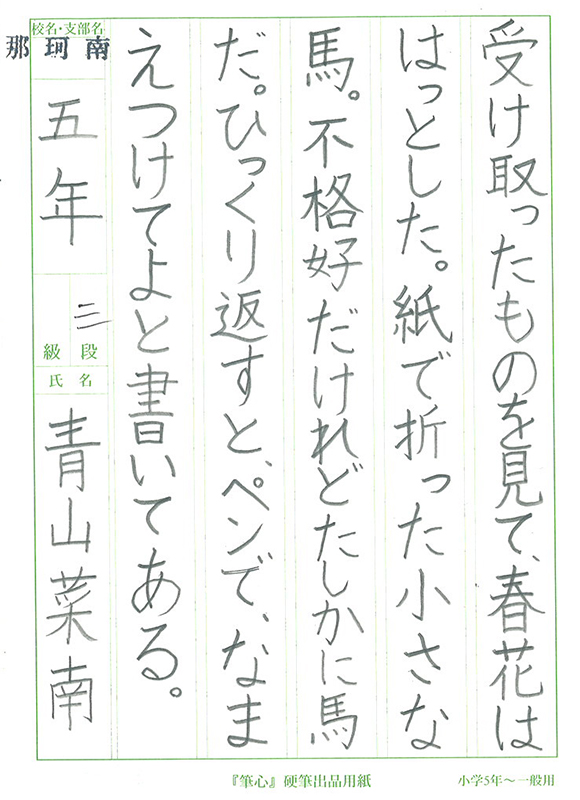 受け取ったものを見て、春花は
はっとした。紙で折った小さな
馬。不格好だけれどたしかに馬
だ。ひっくり返すと、ペンで、なま
えつけてよと書いてある。
校名・支部名
那珂南
五年
三
段
級
氏名
青山菜南
『筆心』硬筆出品用紙
小学5年〜一般用